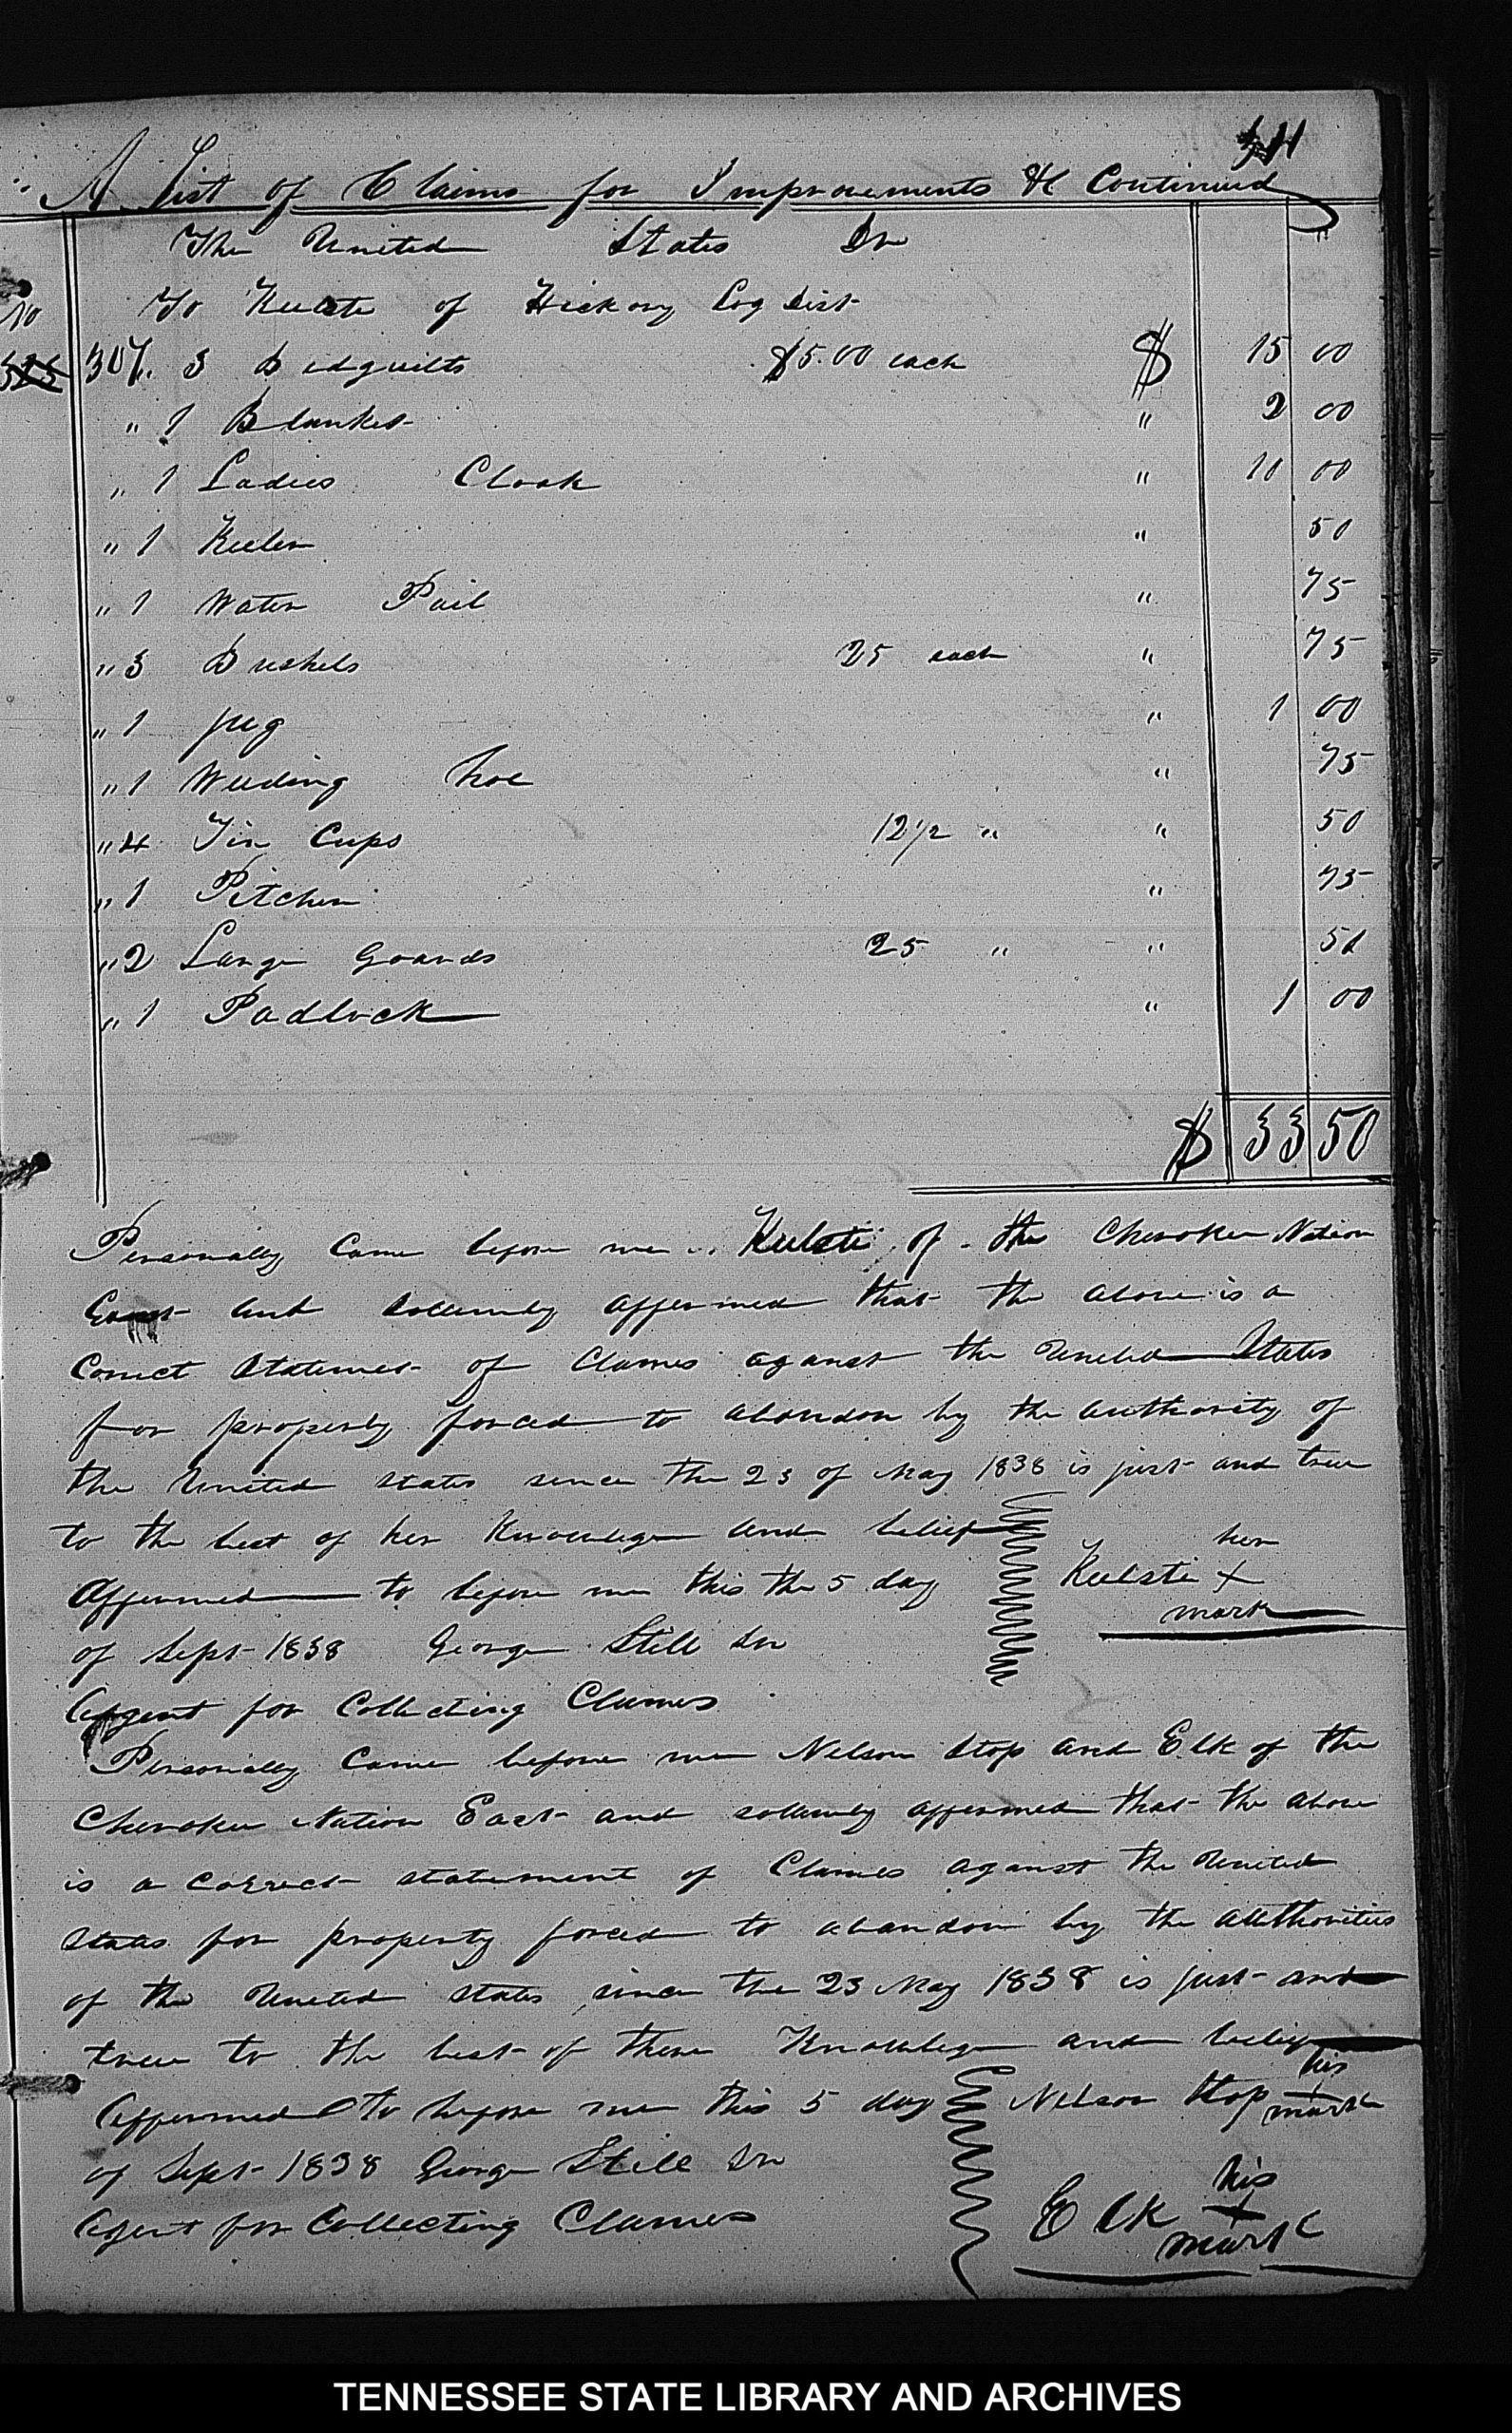 A List of Claims for Improvements &c Continued
The United States Dr
No To Kulste of Hickory Log Dist
325 307. 3 Bedquilts $5.00 each $ 15 00
" 1 Blanket " 2 00
" 1 Ladies Cloak " 10 00
" 1 Keeler " 50
" 1 Water Pail " 75
" 3 Buskels 25 each " 75
" 1 jug " 1 00
" 1 Weeding hoe " 75
" 4 Tin Cups 12 1/2 " " 50
" 1 Pitcher " 75
" 2 Large Goards 25 " " 50
" 1 Padlock " 1 00
$ 33 50
Personally Came before me Kulsti of the Cherokee Nation
East and sollemnly affermed that the above is a
Correct Statement of Clames aganst the United States
for property forced to abandon by the authority of
the United states since the 23 of May 1838 is just and true
to the best of her Knowledge and belief
her
Affermed to before me this the 5 day Kulsti X
mark
of Sept 1838 George Still Sr
Agent for Collecting Clames
Personally Came before me Nelson Stop and Elk of the
Cherokee Nation East and sollemnly affermed that the above
is a Correct statement of Clames aganst the United
States for property forced to abandon by the authorities
of the United states since the 23 May 1838 is just and
true to the best of there Knowledge and belief
his
Affermed to before me this 5 day Nelson Stop X
mark
of Sept 1838 George Still Sr
his
Agent for Collecting Clames Elk X
mark
TENNESSEE STATE LIBRARY AND ARCHIVES